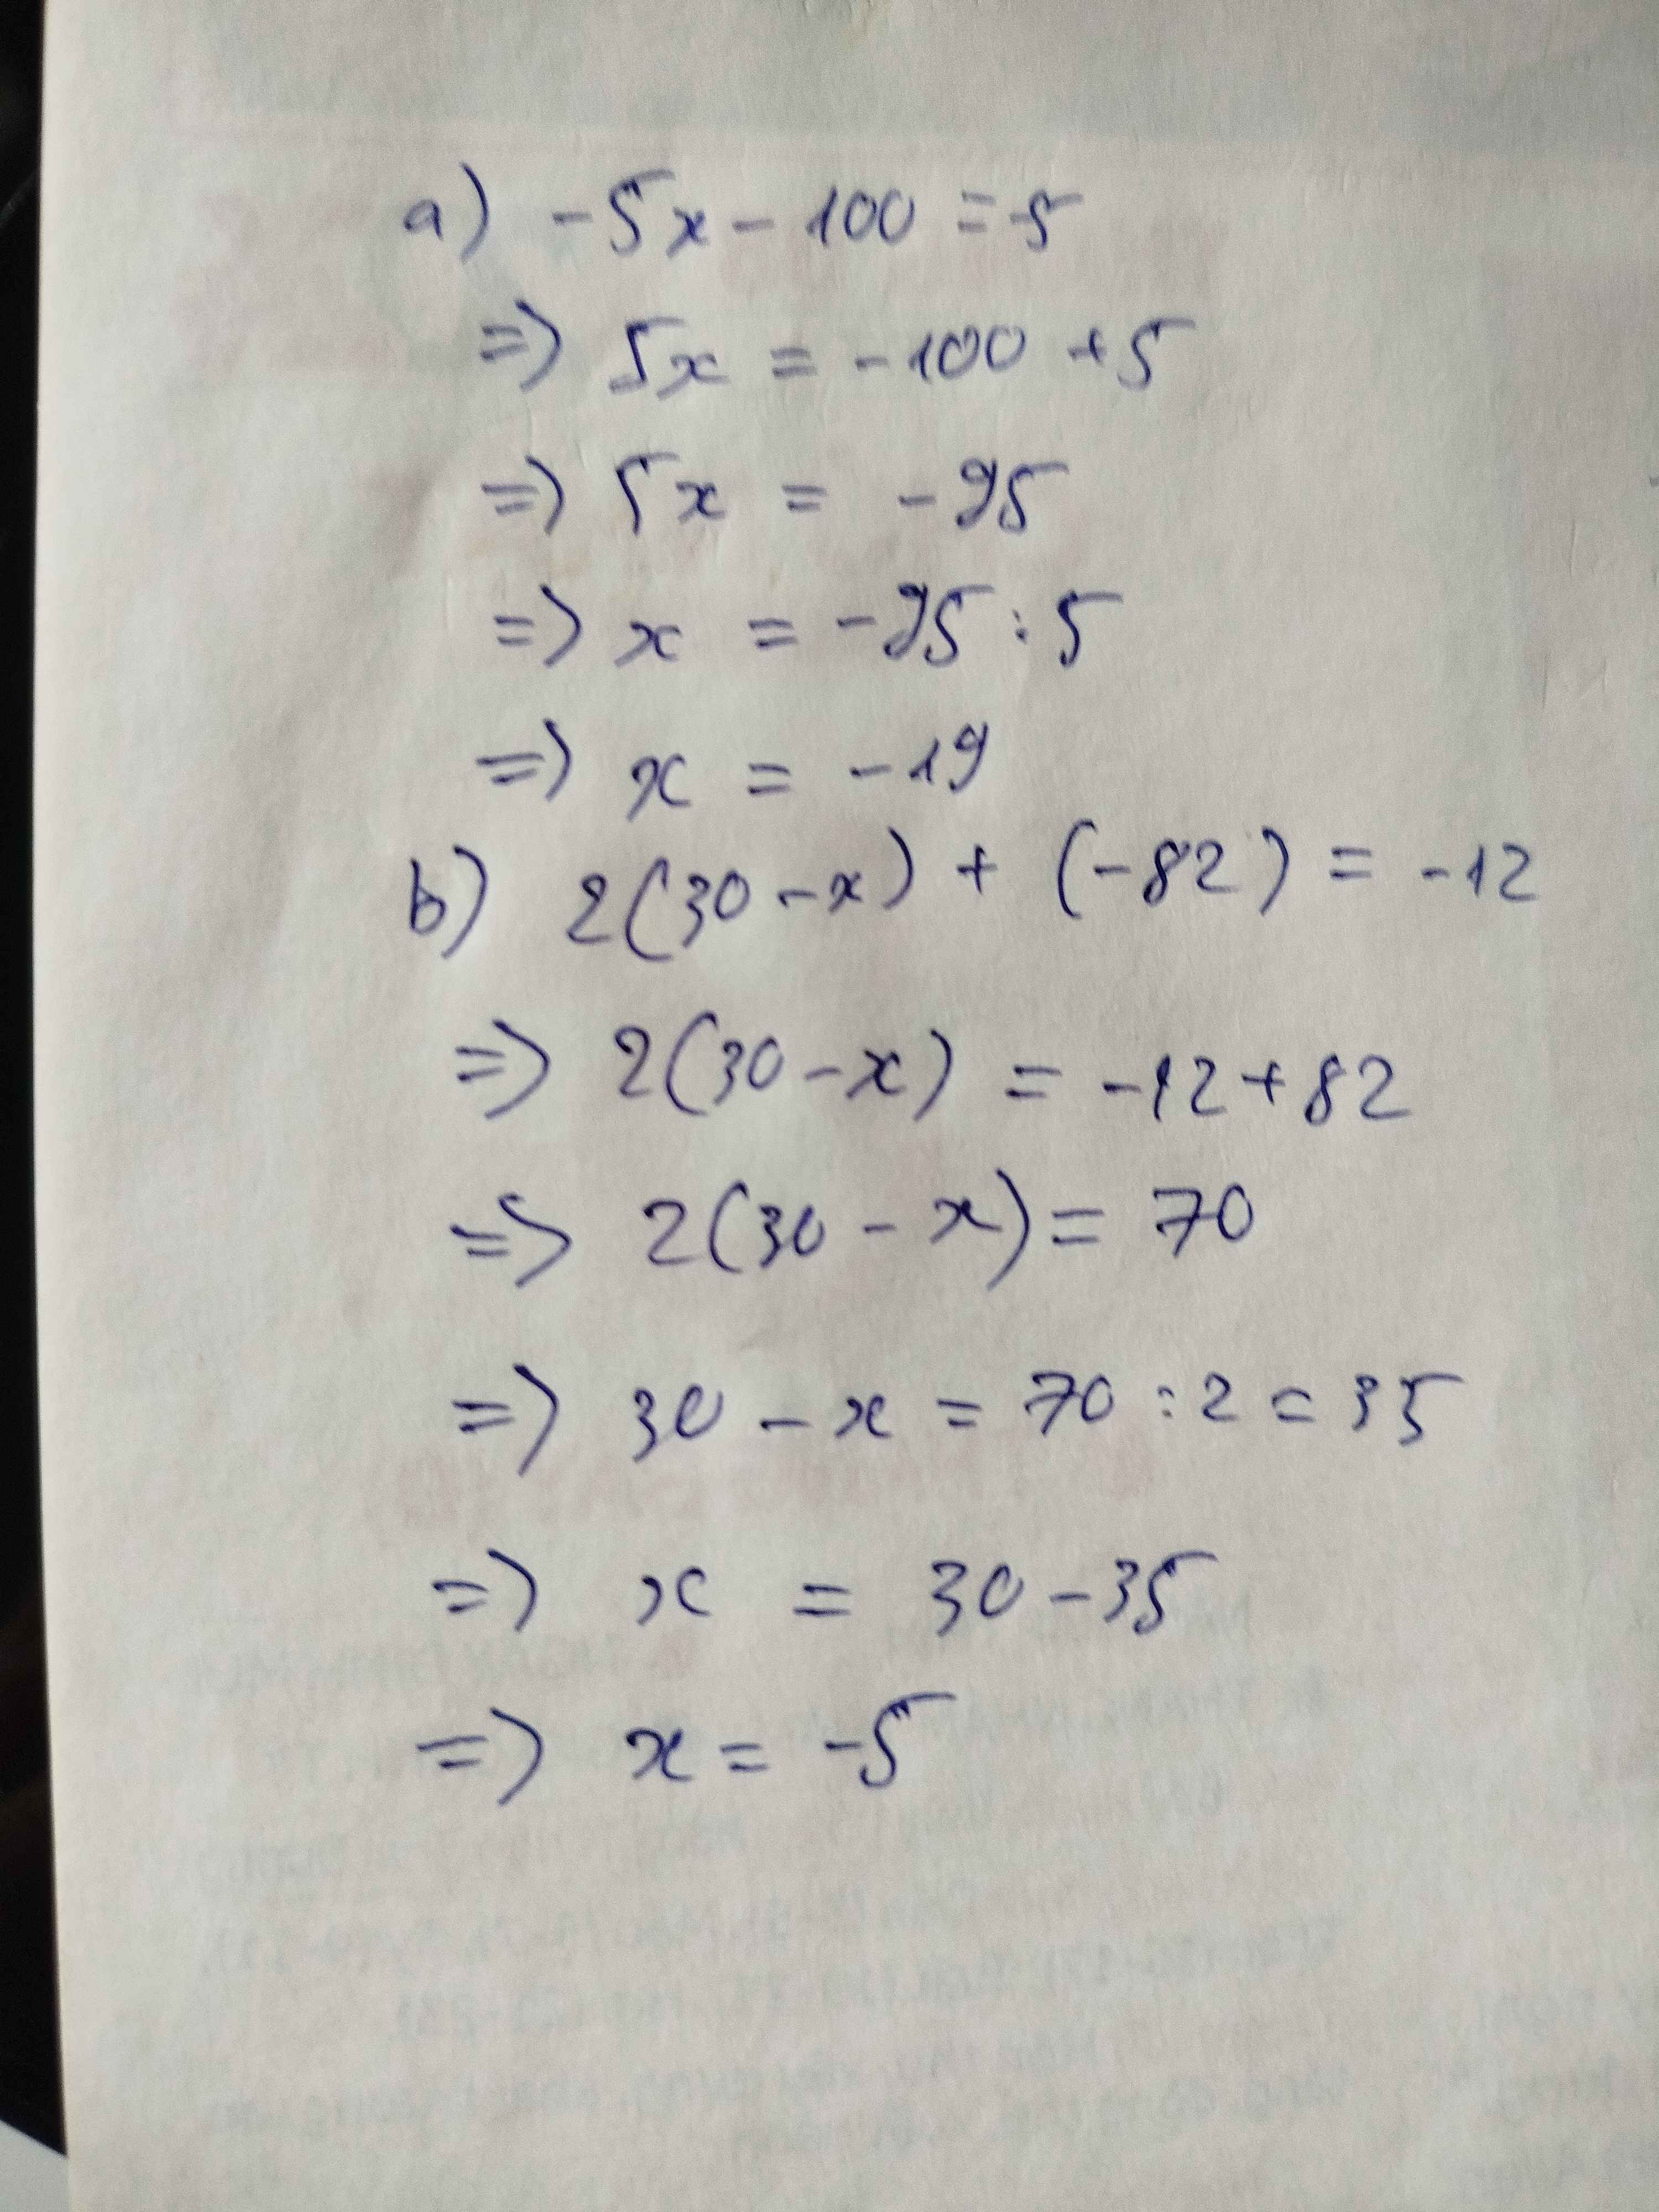 a) -5x - 100 = -5
=> 5x = -100 + 5
=> 5x = -95
=> x = -95 : 5
=> x = -19
b) 2(30 - x) + (-82) = -12
=> 2(30 - x) = -12 + 82
=> 2(30 - x) = 70
=> 30 - x = 70 : 2 = 35
=> x = 30 - 35
=> x = -5